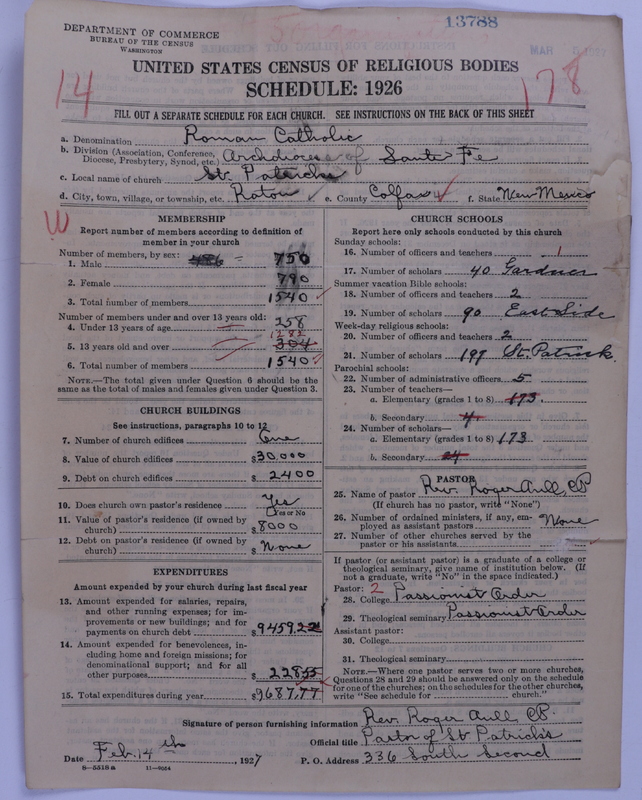 13788
DEPARTMENT OF COMMERCE
BUREAU OF THE CENSUS
WASHINGTON
MAR
UNITED STATES CENSUS OF RELIGIOUS BODIES
SCHEDULE: 1926
14
178
FILL OUT A SEPARATE SCHEDULE FOR EACH CHURCH. SEE INSTRUCTIONS ON THE BACK OF THIS SHEET
a. Denomination Roman Catholic
b. Division (Association, Conference, Diocese, Presbytery, Synod, etc.) Archdiocese of Santa Fe
c. Local name of church St. Patricks
d. City, town, village, or township, etc. Raton e. County Colfax f. State New Mexico
W
MEMBERSHIP
Report number of members according to definition of
member in your church
Number of members, by sex:
1. Male 750
2. Female 790
3. Total number of members 1540
Number of members under and over 13 years old:
4. Under 13 years of age 258
1282
5. 13 years old and over 304
6. Total number of members 1540
NOTE.—The total given under Question 6 should be
the same as the total of males and females given under Question 3.
CHURCH BUILDINGS
See instructions, paragraphs 10 to 12
7. Number of church edifices One
8. Value of church edifices $30,000
9. Debt on church edifices $2400
10. Does church own pastor's residence? Yes
Yes or No
11. Value of pastor's residence (if owned by
church) $8000
12. Debt on pastor's residence (if owned by
church) $None
EXPENDITURES
Amount expended by your church during last fiscal year
13. Amount expended for salaries, repairs,
and other running expenses; for im-
provements or new buildings; and for
payments on church debt $9459.22
14. Amount expended for benevolences, in-
cluding home and foreign missions; for
denominational support; and for all
other purposes $228.55
15. Total expenditures during year $9687.77
CHURCH SCHOOLS
Report here only schools conducted by this church
Sunday schools:
16. Number of officers and teachers 1
17. Number of scholars 40 Gardner
Summer vacation Bible schools:
18. Number of officers and teachers 2
19. Number of scholars 90 East Side
Week-day religious schools:
20. Number of officers and teachers 2
21. Number of scholars 197 St. Patrick
Parochial schools:
22. Number of administrative officers 5
23. Number of teachers—
a. Elementary (grades 1 to 8) 173
b. Secondary 4
24. Number of scholars—
a. Elementary (grades 1 to 8) 173
b. Secondary 24
PASTOR
25. Name of pastor Rev. Roger Aull, CP
(If church has no pastor, write "None")
26. Number of ordained ministers, if any, em-
ployed as assistant pastors None
27. Number of other churches served by the
pastor or his assistants
If pastor (or assistant pastor) is a graduate of a college or
theological seminary, give name of institution below. (If
not a graduate, write "No" in the space indicated.)
Pastor: 2
28. College Passionist Order
29. Theological seminary Passionist Order
Assistant pastor:
30. College
31. Theological seminary
NOTE.—Where one pastor serves two or more churches,
Questions 28 and 29 should be answered only on the schedule
for one of the churches; on the schedules for the other churches,
write "See schedule for church."
Signature of person furnishing information Rev. Roger Aull, CP.
Official title Pastor of St Patricks
Date Feb. 14th, 1927 P. O. Address 336 South Second
8—5318a 11—9564